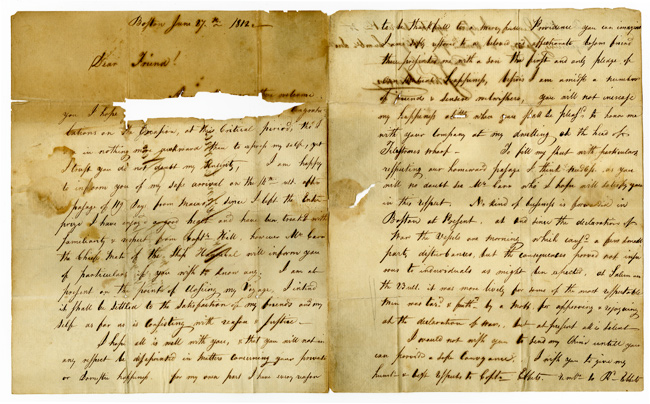 Boston June 27th 1812.
Dear Friend!
welcome
you I hope
tations on the occasion, at this Critical period, tho' I
am in nothing more awkward than to express my self, yet
I trust you do not doubt my sincerity, I am happy
to inform you of my safe arrival on the ult. after
passage of 117 Days from since I left the
I have enjoy'd good health and have been treated with
familiarity & respect from Captn. Hill. however Mr. Carr
the Chief Mate of the Ship will inform you
of particulars if you wish to know any. I am at
present on the point of Closeing my Voyage, I intend
it shall be settled to the satisfaction of my friends and my
self as far as is Consisting with reason & Justice.
I hope all is well with you, & that you will not in
any respect be dissapointed in matters concerning your private
or Domestic happiness. for my own part I have every reason
to be thankfull to a mercyfull Providence you can imagine
affectionate bosom friend
then presented me with a son the first and only pledge of
happiness, besides I am amidst a number
of friends & you will not increase
my happiness when you shall be pleas'd to honor me
with your company at my dwelling at the head of
Tilestones wharf — To fill my sheet with particulars
respecting our homeward passage I think needless, as you
will no doubt see Mr. Carr who I hope will satisfy you
in this respect. No kind of business is provided in
Boston at Present. at and since the declaration of
War the Vessels are mourning, which caus'd a few small
party disturbances, but the consequences proved not inju
rous to individuals as might been expected. at Salem on
the it was more lively for some of the most respectable
men was tar'd & feath'd by a Mob for approving & rejoycing
at the declaration of War. but at present all is silent
I would not wish you to send my untill you
can provide a safe conveyance. I wish you to give my
& best respects to Captn. Ebbets. to R. Ebbets